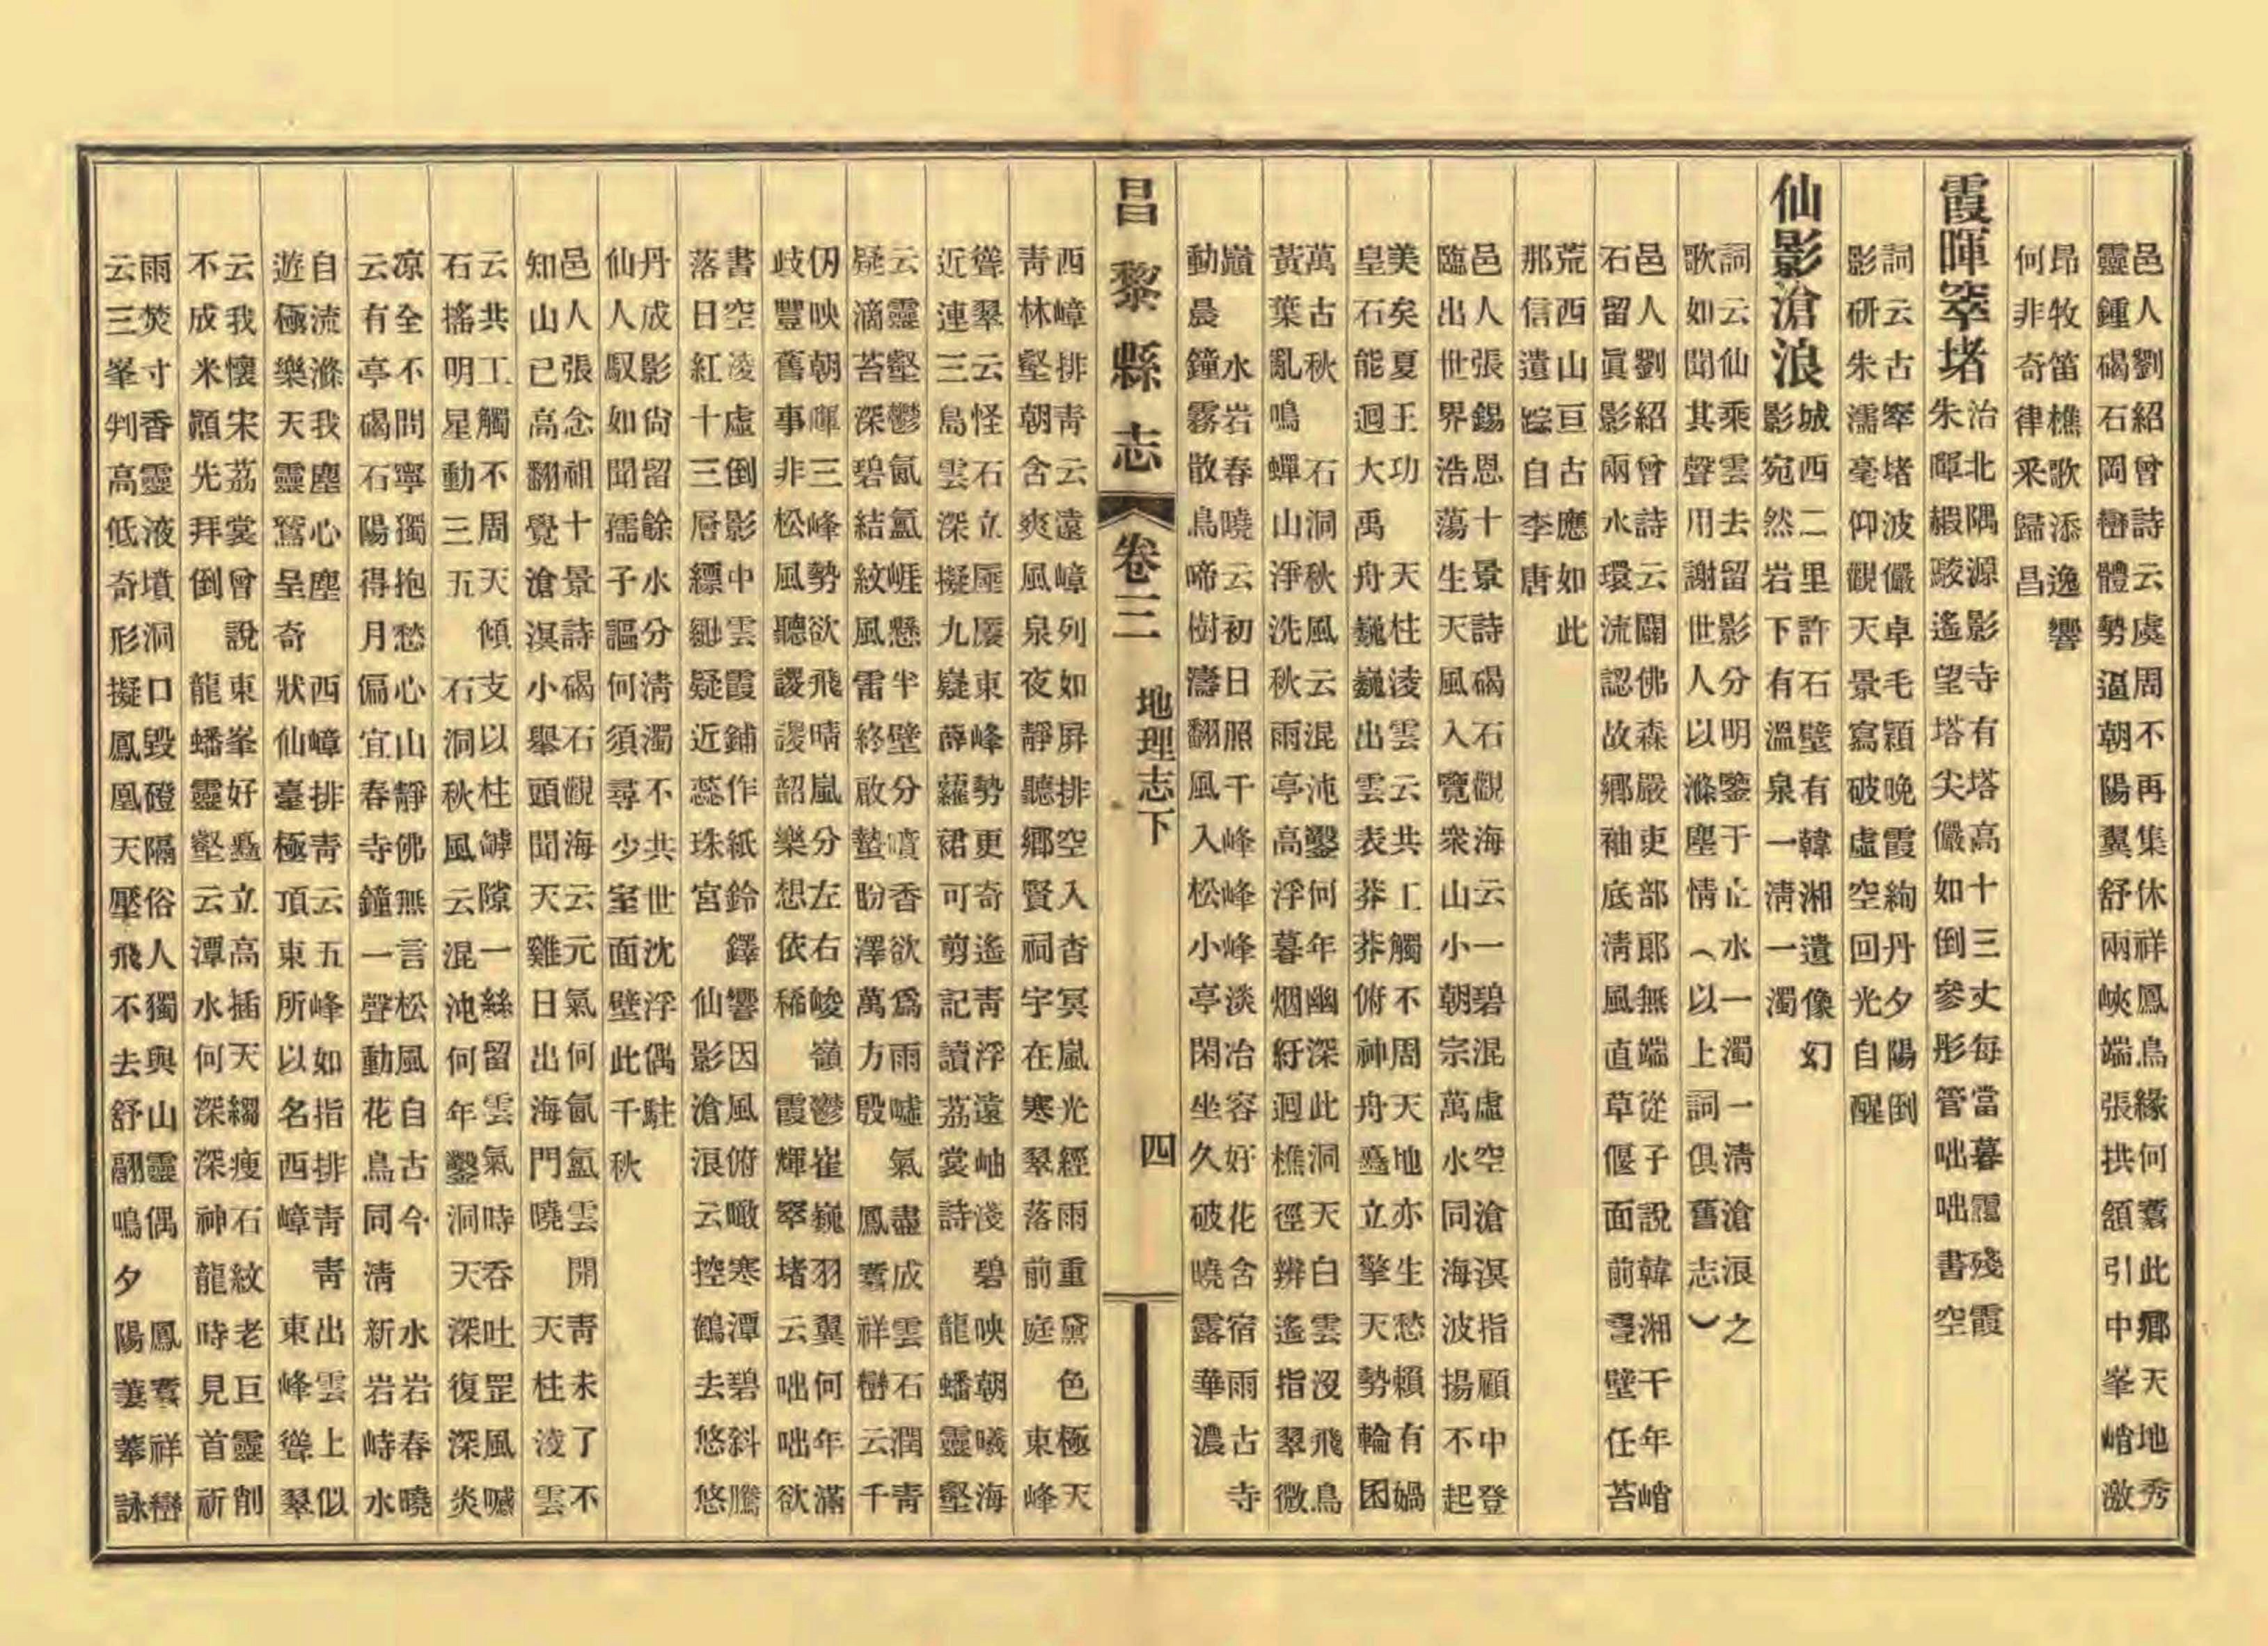 邑人劉紹曾詩云虞周不再集休祥鳳鳥緣何翥此鄉天地秀
靈鍾碣石岡巒體勢逼朝陽翼舒兩峽端張拱頷引中峯峭激
昂牧笛樵歌添逸響
何非奇律釆歸昌
霞暉窣堵
治北隅源影寺有塔高十三丈每當暮靄殘霞
朱暉緞駁遙望塔尖儼如倒參彤管咄咄書空
詞云古窣堵波儼卓毛穎晚霞絢丹夕陽倒
影研朱濡毫仰觀天景寫破虛空回光自醒
仙影滄浪
城西二里許石壁有韓湘遺像幻
影宛然岩下有溫泉一淸一濁
詞云仙乘雲去留影分明鑒于止水一濁一淸滄浪之
歌如聞其聲用謝世人以滌塵情(以上詞俱舊志)
邑人劉紹曾詩云闢佛森嚴吏部郞無端從子說韓湘千年峭
石留眞影兩水環流認故鄉袖底淸風直草偃面前靈壁任苔
荒西山亘古應如此
那信遺踪自李唐
邑人張錫恩十景詩碣石觀海云一碧混虛空滄溟指顧中登
臨出世界浩蕩生天風入覽衆山小朝宗萬水同海波揚不起
美矣夏王功 天柱淩雲云共工觸不周天地亦生愁賴有媧
皇石能迴大禹舟巍巍出雲表莽莽俯神舟矗立擎天勢輪囷
萬古秋 石洞秋風云混沌鑿何年幽深此洞天白雲沒飛鳥
黃葉亂鳴蟬山淨洗秋雨亭高浮暮烟紆迴樵徑辨遙指翠微
巔 水岩春曉云初日照千峰峰峰淡冶容好花含宿雨古寺
動晨鐘霧散鳥啼樹濤翻風入松小亭閑坐久破曉露華濃
昌黎縣志 卷三 地理志下 四
西嶂排靑云遠嶂列如屏排空入杳冥嵐光經雨重黛色極天
靑林壑朝含爽風泉夜靜聽鄉賢祠宇在寒翠落前庭 東峰
聳翠云怪石立厜㕒東峰勢更奇遙靑浮遠岫淺碧映朝曦海
近連三島雲深擬九嶷薜蘿裙可剪記讀荔裳詩 龍蟠靈壑
云靈壑鬱氤氳崕懸半壁分噴香欲爲雨噓氣盡成雲石潤靑
疑滴苔深碧結紋風雷終啟蟄盼澤萬方殷 鳳翥祥巒云千
仞映朝暉三峰勢欲飛晴嵐分左右峻嶺鬱崔巍羽翼何年滿
岐豐舊事非松風聽謖謖韶樂想依稀 霞輝窣堵云咄咄欲
書空凌虛倒影中雲霞鋪作紙鈴鐸響因風俯瞰寒潭碧斜騰
落日紅十三層縹緲疑近蕊珠宮 仙影滄浪云控鶴去悠悠
丹成影尙留餘水分淸濁不共世沈浮偶駐
仙人馭如聞孺子謳何須尋少室面壁此千秋
邑人張念祖十景詩碣石觀海云元氣何氤氳雲開靑未了不
知山已高翻覺滄溟小舉頭聞天雞日出海門曉 天柱淩雲
云共工觸不周天傾支以柱罅隙一絲留雲氣時吞吐罡風嚇
石搖明星動三五 石洞秋風云混沌何年鑿洞天深復深炎
凉全不問寧獨抱愁心山靜佛無言松風自古今 水岩春曉
云有亭碣石陽得月偏宜春寺鐘一聲動花鳥同淸新岩峙水
自流滌我塵心塵 西嶂排靑云五峰如指排靑靑出雲上似
遊極樂天靈鷲呈奇狀仙臺極頂東所以名西嶂 東峰聳翠
云我懷宋荔裳曾說東峯好矗立高插天縐瘦石紋老巨靈削
不成米顚先拜倒 龍蟠靈壑云潭水何深深神龍時見首祈
雨焚寸香靈液墳洞口毀磴隔俗人獨與山靈偶 鳳翥祥巒
云三峯判高低奇形擬鳳凰天壓飛不去舒翮鳴夕陽萋菶詠